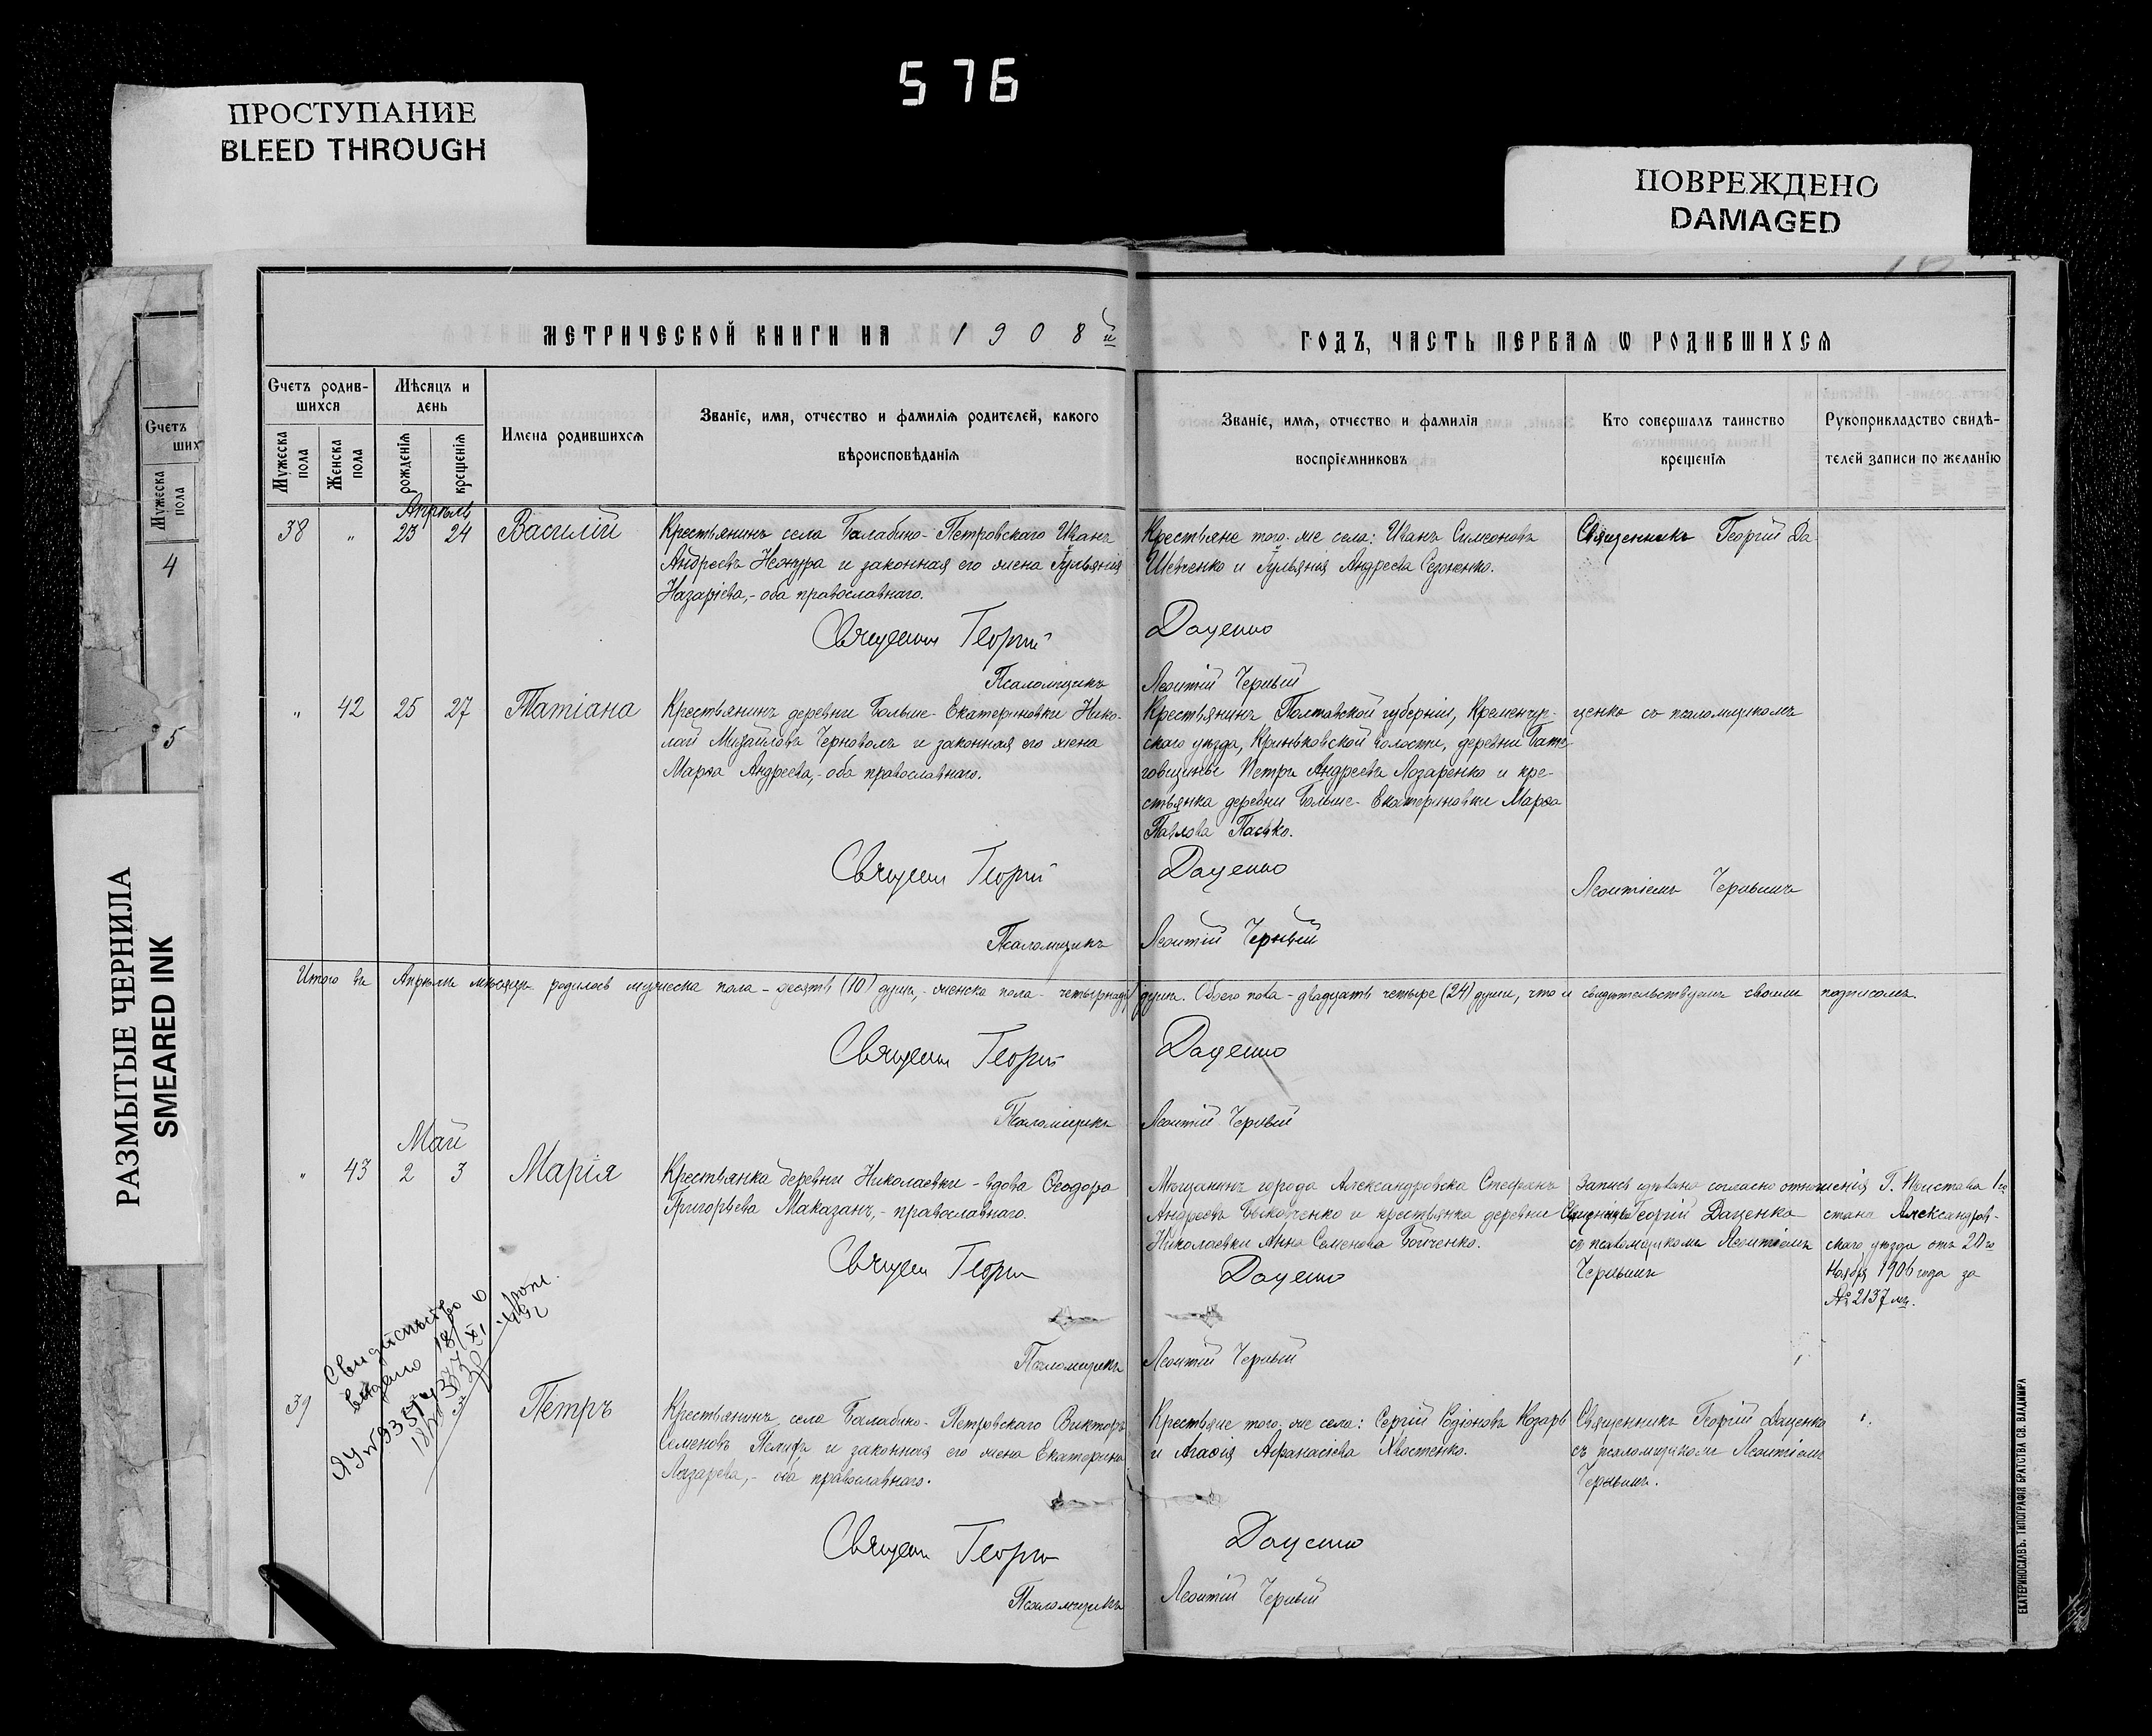 576
ПРОСТУПАНИЕ
BLEED THROUGH
ПОВРЕЖДЕНО
DAMAGED
РАЗМЫТЫЕ ЧЕРНИЛА
SMEARED INK
Счетъ
ших
Мужеска пола
4
5
МЕТРИЧЕСКОЙ КНИГИ НА 1908й ГОДЪ, ЧАСТЬ ПЕРВАЯ Ѡ РОДИВШИХСЯ
Счетъ родив-
шихся
Мужеска пола
Женска пола
Мѣсяцъ и
день
рожденія
крещенія
Имена родившихся
Званіе, имя, отчество и фамилія родителей, какого
вѣроисповѣданія
Званіе, имя, отчество и фамилія
воспріемниковъ
Кто совершалъ таинство
крещенія
Рукоприкладство свидѣ-
телей записи по желанію
Апрѣль
38 " 23 24 Василій
Крестьянинъ села Балабино-Петровскаго Иванъ
Андреевъ Нежура и законная его жена Іульянія
Назаріева,- оба православнаго.
Крестьяне того-же села: Иванъ Симеоновъ
Шевченко и Іульянія Андреева
Священникъ Георгій Да-
Священникъ Георгій Даценко
Псаломщикъ Леонтій Червый
" 42 25 27 Татіана
Крестьянинъ деревни Больше-Екатериновки Нико-
лай Михайловъ Черноволъ и законная его жена
Марѳа Андреева,- оба православнаго.
Крестьянинъ Полтавской губерніи, Кременчуг-
скаго уѣзда, Криньковской волости, деревни
Петръ Андреевъ Лазаренко и кре-
стьянка деревни Больше-Екатериновки Марѳа
Павлова Пасько.
ценко съ псаломщикомъ
Леонтіемъ Червымъ
Священ Георгій Даценко
Псаломщикъ Леонтій Червый
Итого въ Апрѣлѣ мѣсяцѣ родилось мужеска пола - десять (10) душъ,- женска пола - четырнадц душъ. Обоего пола - двадцать четыре (24) души, что и свидѣтельствуемъ своими подписомъ.
Священ Георгій Даценко
Псаломщикъ Леонтій Червый
Май
" 43 2 3 Марія
Крестьянка деревни Николаевки - вдова Ѳеодора
Григорьева Маказанъ,- православнаго.
Мѣщанинъ города Александровска Стефанъ
Андреевъ и крестьянка деревни
Николаевки Анна Семенова Бойченко.
Священникъ Георгій Даценко
съ псаломщикомъ Леонтіемъ
Червымъ
Запись сдѣлана согласно отношенія Г. Пристава 1го
стана Александров-
скаго уѣзда отъ 20го
Ноября 1906 года за
№ 2137мъ.
Священ Георгій Даценко
Псаломщикъ Леонтій Червый
Свидѣтельство о рожд.
выдано 18/XI
39 Петръ
Крестьянинъ села Балабино-Петровскаго Викторъ
Семеновъ и законная его жена Екатерина
Лазарева,- оба православнаго.
Крестьяне того-же села: Сергій Родіоновъ Козарь
и Агаѳія Аѳанасіева Хвостенко.
Священникъ Георгій Даценко
съ псаломщикомъ Леонтіемъ
Червымъ.
Священ Георгій Даценко
Псаломщикъ Леонтій Червый
ЕКАТЕРИНОСЛАВЪ. ТИПОГРАФІЯ БРАТСТВА СВ. ВЛАДИМІРА